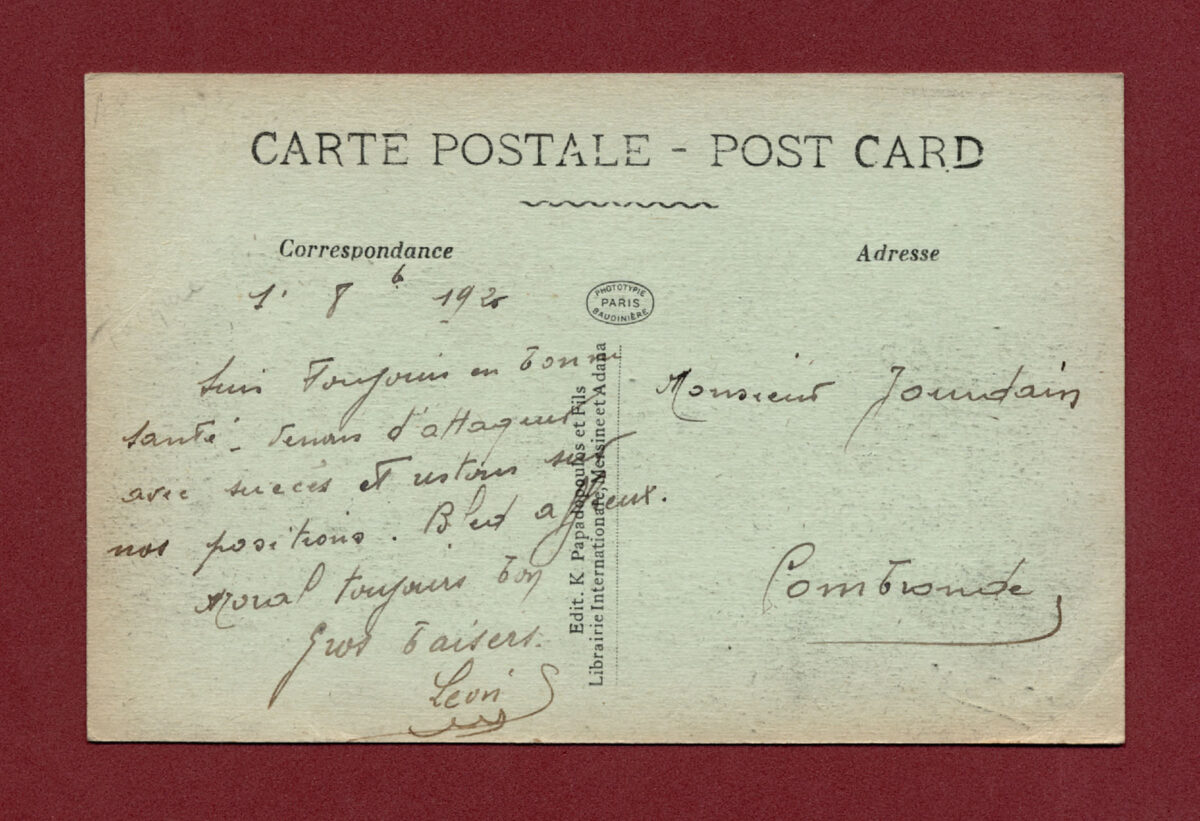 CARTE POSTALE - POST CARD
Correspondance
Adresse
1. 8b 192
PHOTOTYPIE
PARIS
BAUDINIÈRE
Suis toujours en bonne
santé - Venons d'attaquer
avec succès et restons sur
nos positions. Bled affreux.
Moral toujours bon
Gros baisers.
Léon
Edit. K. Papadopoulos et Fils
Librairie Internationale, Mersine et Adana
Monsieur Jourdain
Combronde